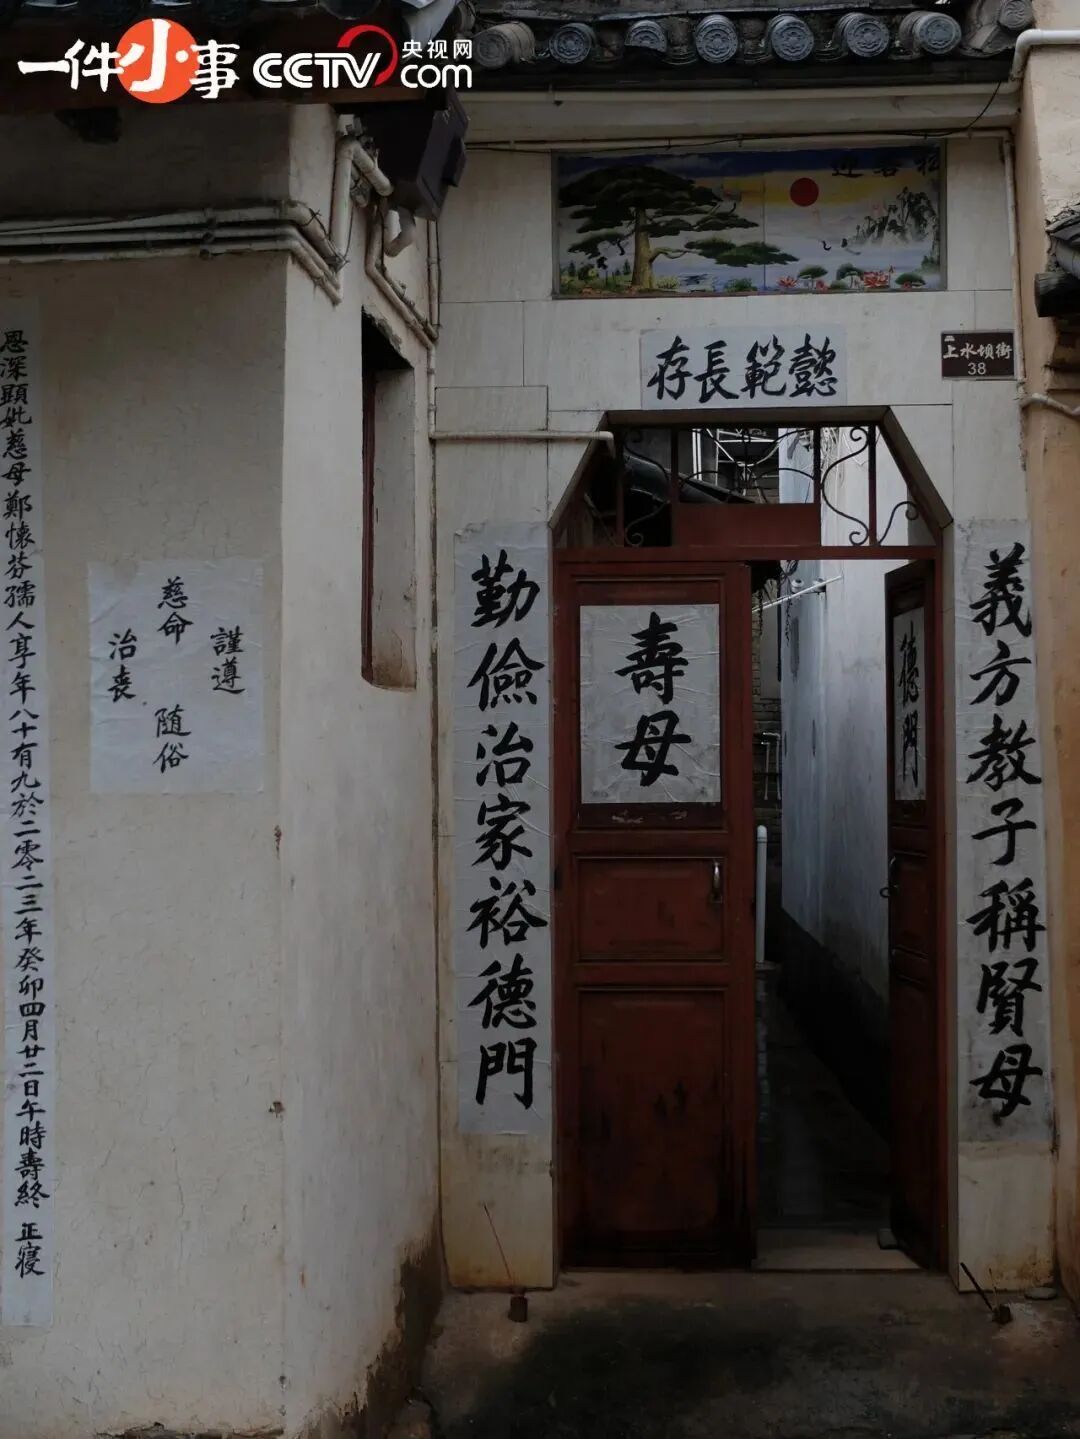 一件小事 CCTV.com 央视网
迎客松
懿範長存
上水坝街
38
義方教子稱賢母
勤儉治家裕德門
壽母
德門
謹遵
慈命
随俗
治丧
恩深顯妣慈母鄭懷芬孺人享年八十有九於二零二三年癸卯四月廿二日午時壽終正寝